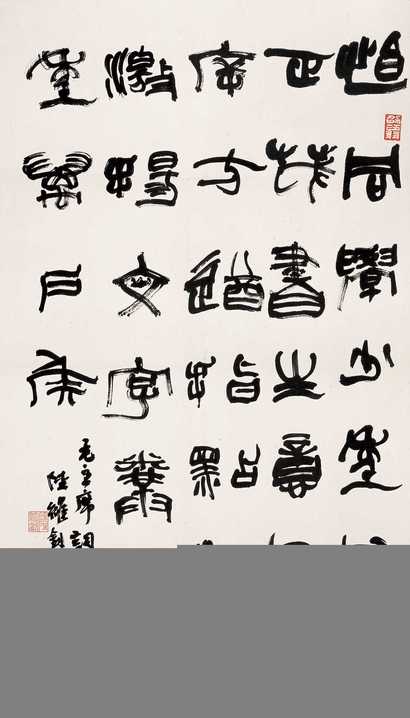 恰同學少年
正茂書生意
斥方遒指點
激揚文字糞
年萬戶侯
毛主席詞
陸維釗